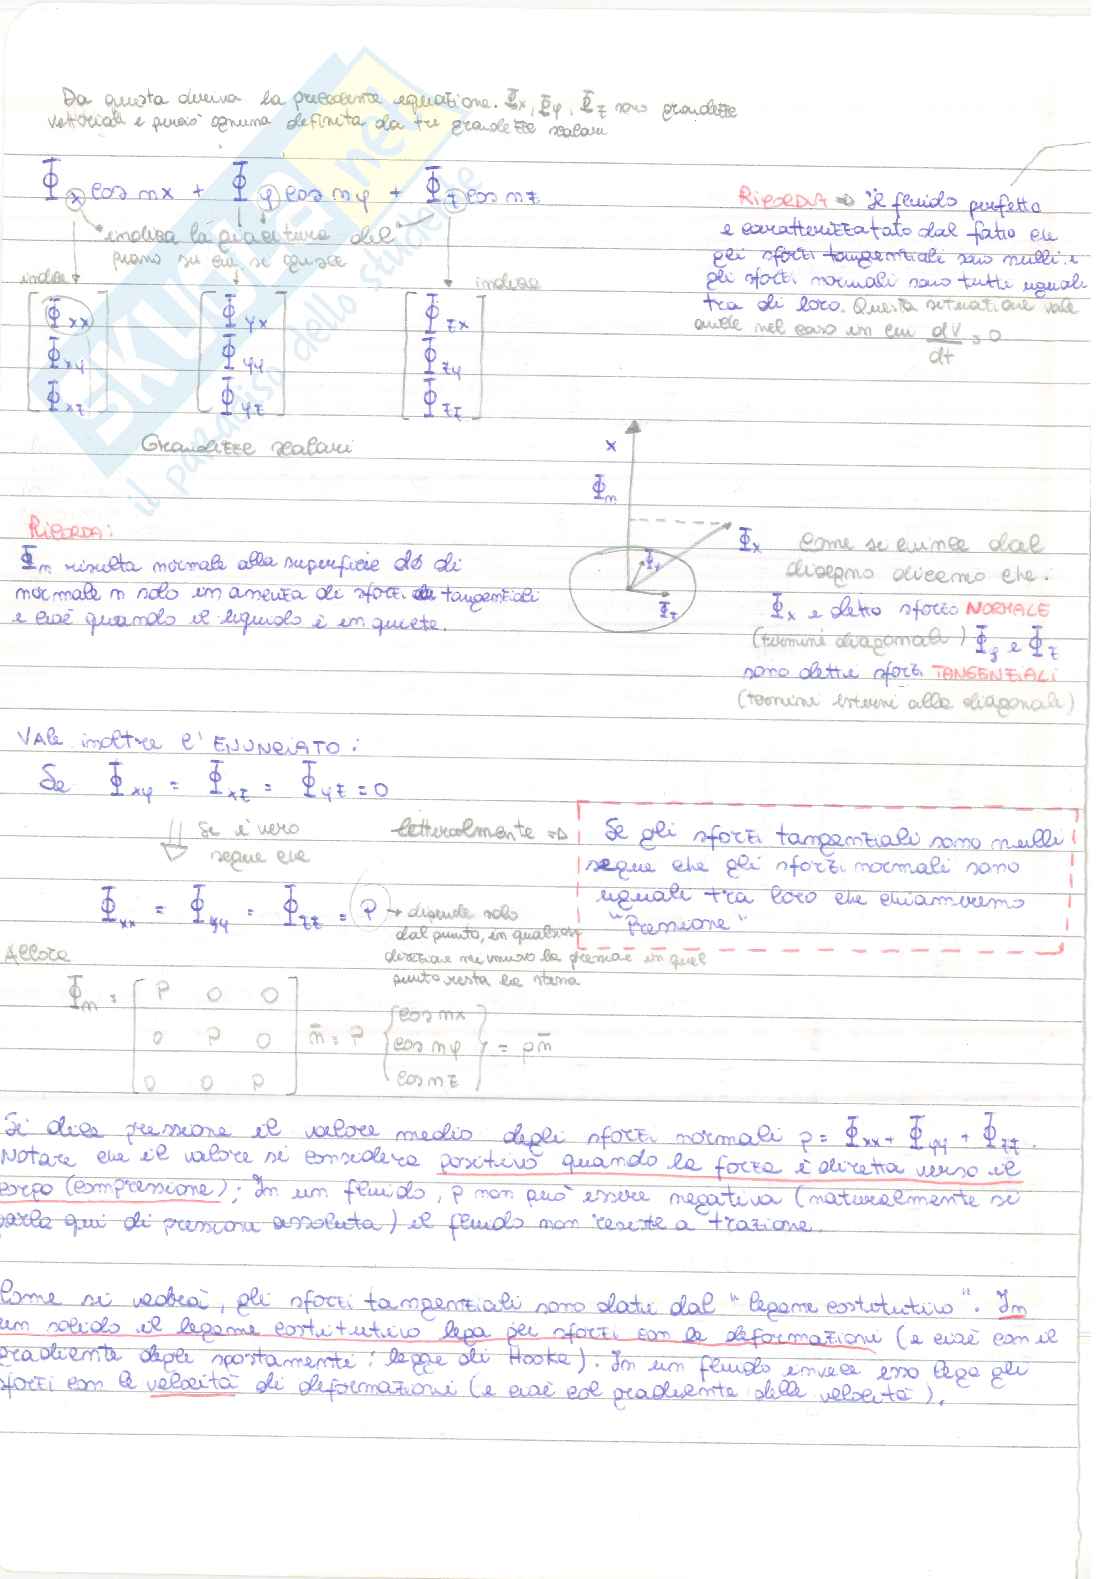 Da questa deriva la precedente equazione. Φx, Φy, Φz sono grandezze
vettoriali e perciò ognuna definita da tre grandezze scalari
Φx cos nx + Φy cos ny + Φz cos nz
indica la giacitura del
piano su cui si agisce
indica
indica
Φxx Φyx Φzx
Φxy Φyy Φzy
Φxz Φyz Φzz
Grandezze scalari
RICORDA => Il fluido perfetto
è caratterizzato dal fatto che
gli sforzi tangenziali sono nulli e
gli sforzi normali sono tutti uguali
tra di loro. Questa situazione vale
anche nel caso in cui dV/dt = 0
x
Φn
Φx
Φy
Φz
RICORDA:
Φn risulta normale alla superficie dS di
normale n solo in assenza di sforzi tangenziali
e cioè quando il liquido è in quiete.
Come si evince dal
disegno diciamo che:
Φx è detto sforzo NORMALE
(termini diagonali) Φy e Φz
sono detti sforzi TANGENZIALI
(termini esterni alla diagonale)
VALE inoltre l'ENUNCIATO:
Se Φxy = Φxz = Φyz = 0
Se è vero
segue che
letteralmente =>
Se gli sforzi tangenziali sono nulli
segue che gli sforzi normali sono
uguali tra loro che chiameremo
"Pressione"
Φxx = Φyy = Φzz = P → dipende solo
dal punto, in qualsiasi
direzione misuro la pressione in quel
punto resta la stessa
Allora
Φn = [P 0 0
0 P 0
0 0 P] n̄ = P {cos nx
cos ny
cos nz} = pn̄
Si dice pressione il valore medio degli sforzi normali p = Φxx + Φyy + Φzz.
Notare che il valore si considera positivo quando la forza è diretta verso il
corpo (compressione); In un fluido, p non può essere negativa (naturalmente si
parla qui di pressioni assoluta) il fluido non resiste a trazione.
Come si vedrà, gli sforzi tangenziali sono dati dal "legame costitutivo". In
un solido il legame costitutivo lega gli sforzi con le deformazioni (e cioè con il
gradiente degli spostamenti: legge di Hooke). In un fluido invece esso lega gli
sforzi con le velocità di deformazioni (e cioè col gradiente delle velocità).
SKUOLA.net
il paradiso dello studente